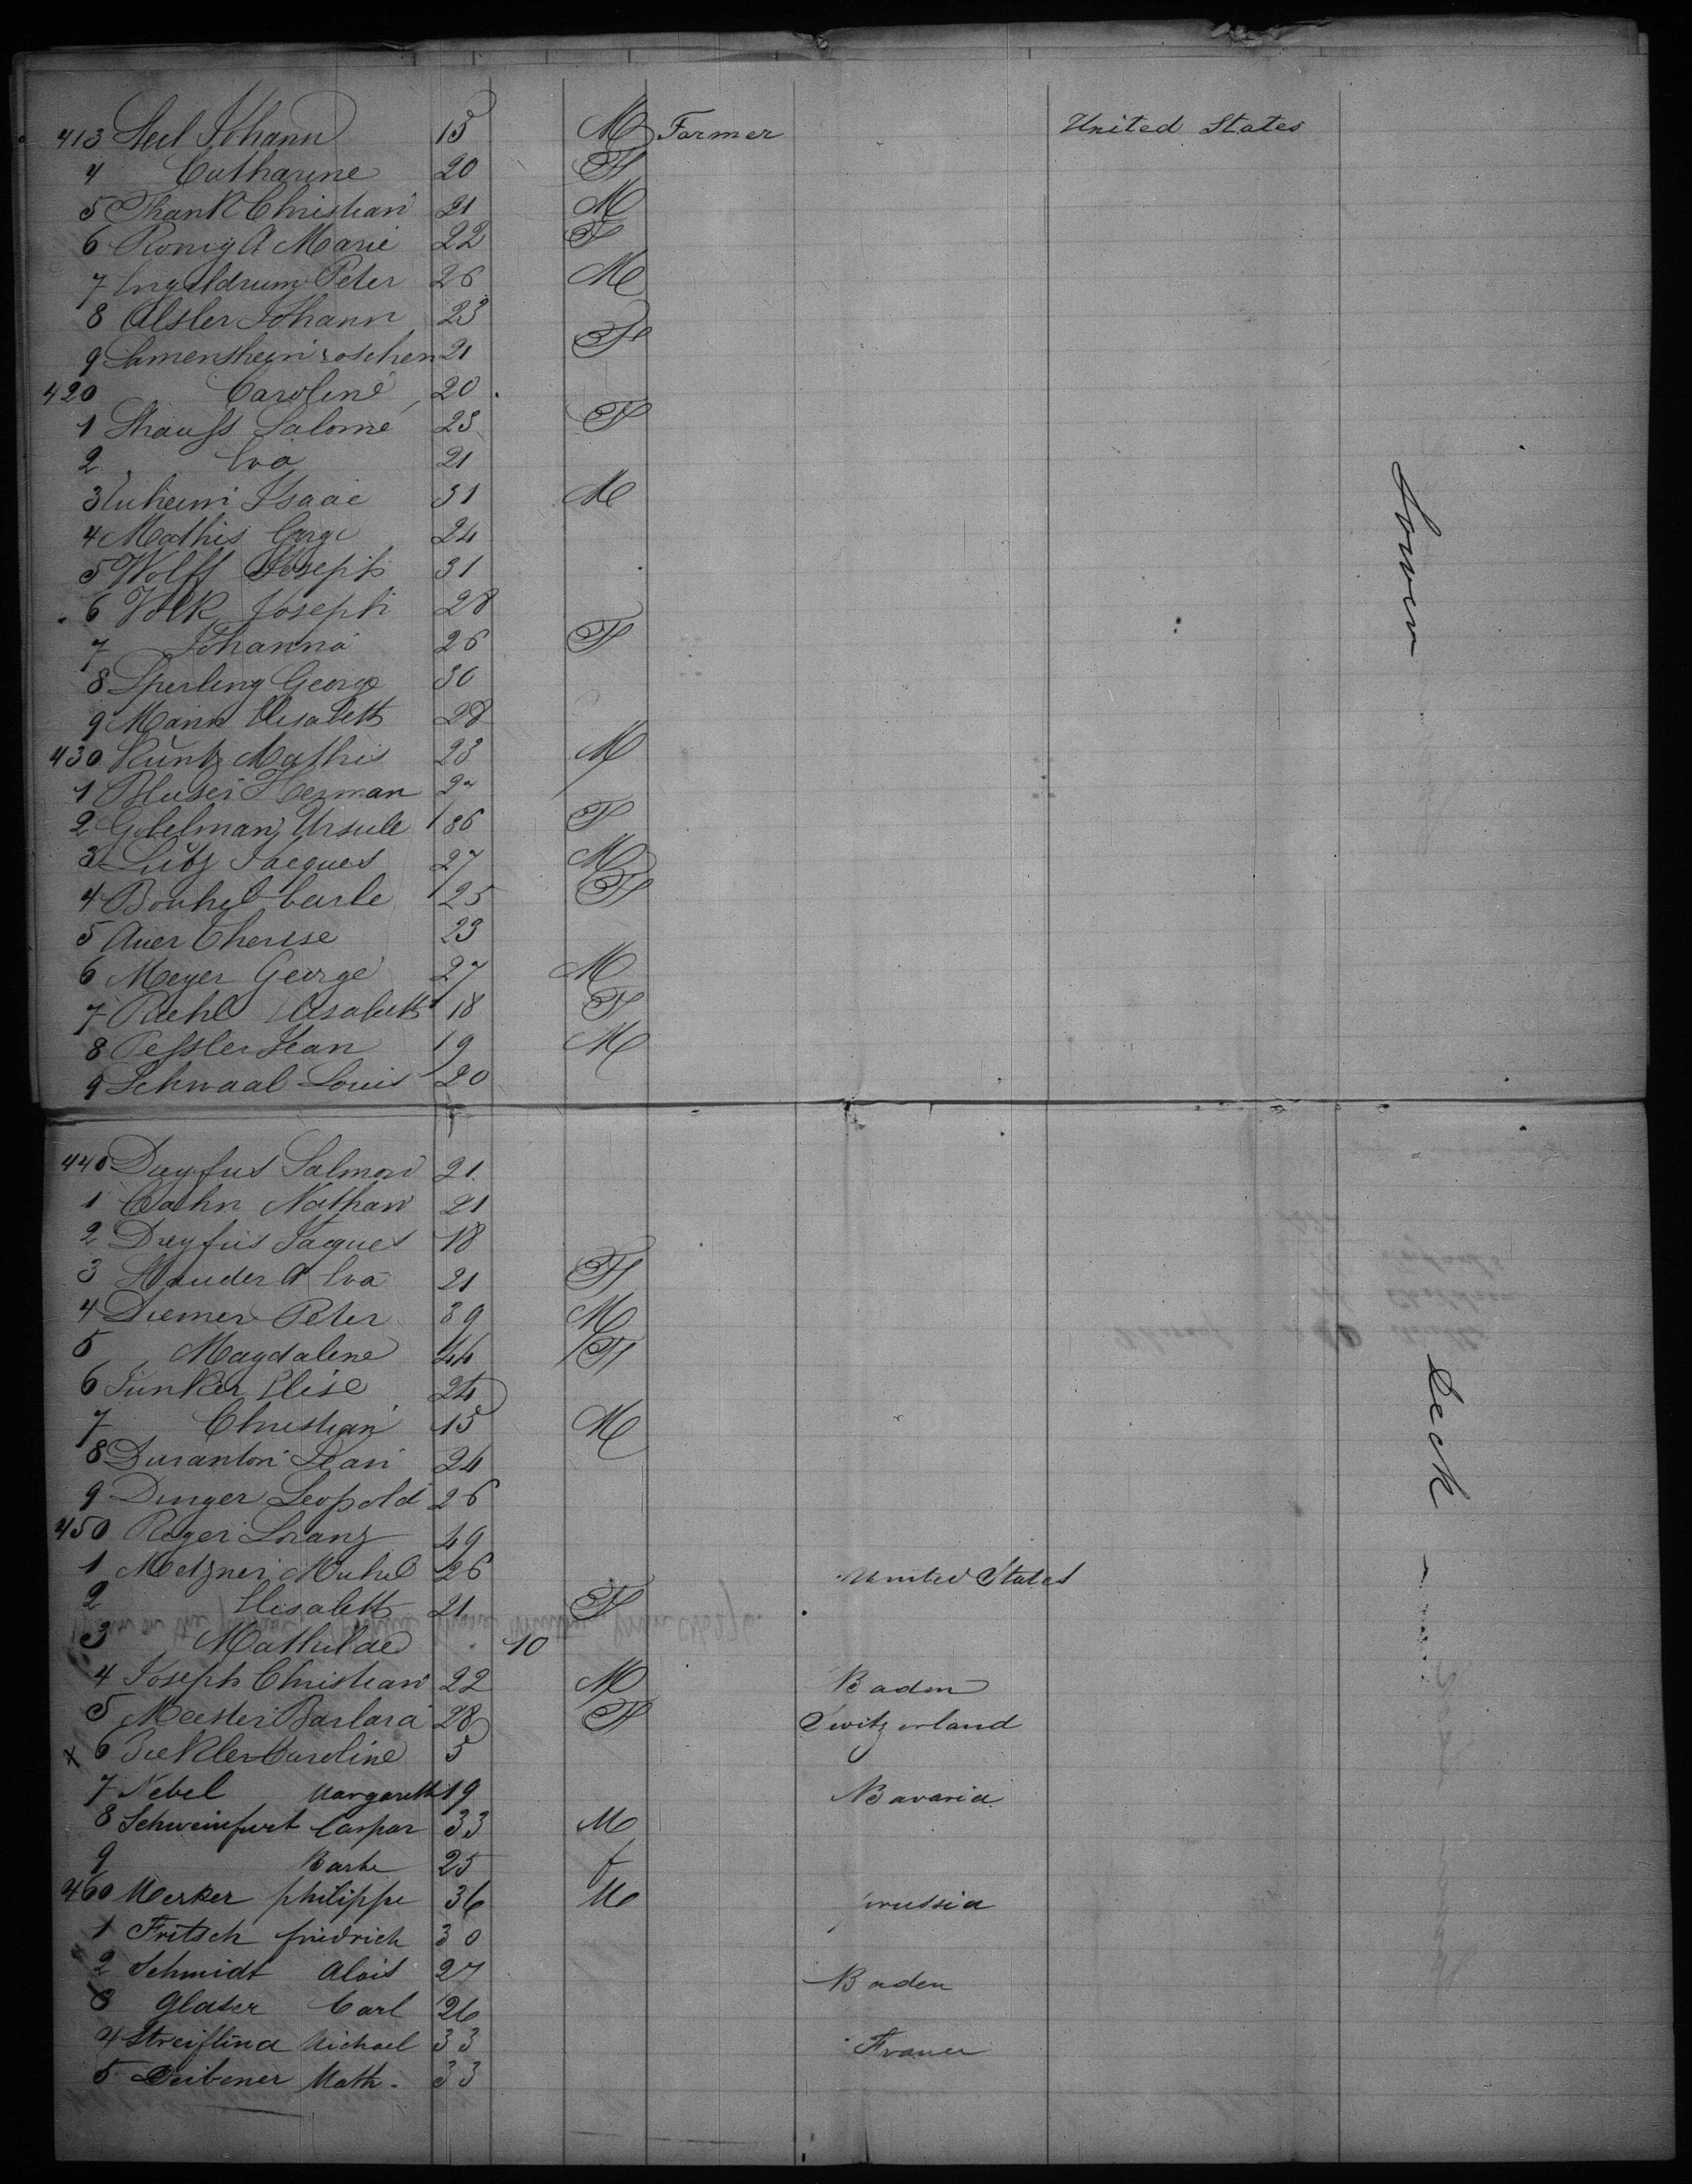 413 Seel Johann 15 M Farmer United States
4 Catharine 20 F
5 Frank Christian 21 M
6 Ronig A Marie 22 F
7 Peter 26 M
8 Alsler Johann 23
9 21 F
420 Caroline 20
1 Strauss Salome 23 F
2 Eva 21
3 Isaac 31 M
4 Mathis George 24
5 Wolff Joseph 31
6 Volk Joseph 28
7 Johanna 26 F
8 Sperling George 30
9 Mann Elisabeth 28
430 Kuntz Mathis 23 M
1 Herman 27
2 Gobelman Ursule 36 F
3 Lutz Jacques 27 M
4 25 F
5 Auer Therese 23
6 Meyer George 27 M
7 Riehl Elisabeth 18 F
8 Pessler Jean 19 M
9 Schwaal Louis 20
440 Dreyfus Salmon 21
1 Cahn Nathan 21
2 Dreyfus Jaques 18
3 A Eva 21 F
4 Diemer Peter 39 M
5 Magdalene 44 F
6 Junker Elise 24
7 Christian 15 M
8 Duranton Jean 24
9 Dinger Leopold 26
450 Roger Loranz 49
1 Metzner Michel 26 United States
2 Elisabeth 21 F
3 Mathilde 10
4 Joseph Christian 22 M Baden
5 Meester Barbara 28 F Switzerland
x 6 Caroline 5
7 Nebel Margareth 19 Bavaria
8 Schweinfurt Caspar 33 M
9 Barbe 25 f
460 Merker philippe 36 M prussia
1 Fritsch friedrich 30
2 Schmidt Alois 27 Baden
3 Glaser Carl 26
4 Michael 33 France
5 Deibener Math. 33
Lower Deck